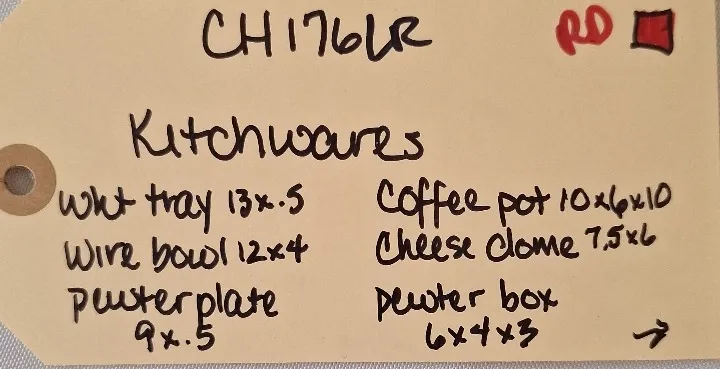 CH176LR RD
Kitchwares
Wht tray 13x.5
Wire bowl 12x4
pewter plate
9x.5
Coffee pot 10x6x10
Cheese dome 7,5x6
pewter box
6x4x3 →